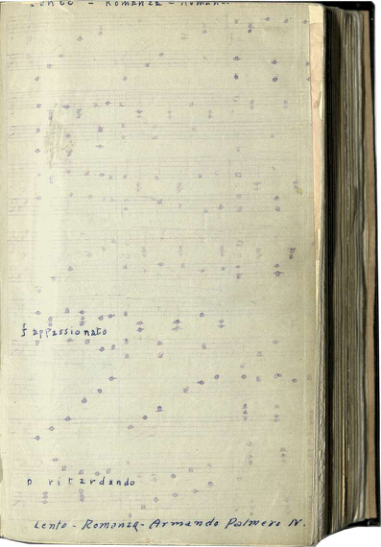 Lento - Romanza - Romanza
f appassionato
p ritardando
Lento - Romanza - Armando Palmero N.